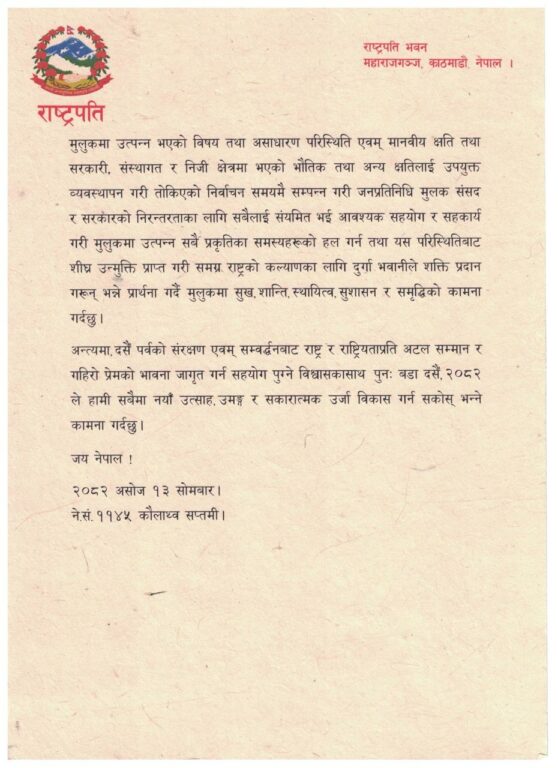 राष्ट्रपति
राष्ट्रपति भवन
महाराजगञ्ज, काठमाडौं, नेपाल ।
मुलुकमा उत्पन्न भएको विषय तथा असाधारण परिस्थिति एवम् मानवीय क्षति तथा
सरकारी, संस्थागत र निजी क्षेत्रमा भएको भौतिक तथा अन्य क्षतिलाई उपयुक्त
व्यवस्थापन गरी तोकिएको निर्वाचन समयमै सम्पन्न गरी जनप्रतिनिधि मुलक संसद
र सरकारको निरन्तरताका लागि सबैलाई संयमित भई आवश्यक सहयोग र सहकार्य
गरी मुलुकमा उत्पन्न सबै प्रकृतिका समस्यहरूको हल गर्न तथा यस परिस्थितिबाट
शीघ्र उन्मुक्ति प्राप्त गरी समग्र राष्ट्रको कल्याणका लागि दुर्गा भवानीले शक्ति प्रदान
गरून् भन्ने प्रार्थना गर्दै मुलुकमा सुख, शान्ति, स्थायित्व, सुशासन र समृद्धिको कामना
गर्दछु ।
अन्त्यमा, दसैँ पर्वको संरक्षण एवम् सम्वर्द्धनबाट राष्ट्र र राष्ट्रियताप्रति अटल सम्मान र
गहिरो प्रेमको भावना जागृत गर्न सहयोग पुग्ने विश्वासकासाथ पुनः बडा दसैँ, २०८२
ले हामी सबैमा नयाँ उत्साह, उमङ्ग र सकारात्मक उर्जा विकास गर्न सकोस् भन्ने
कामना गर्दछु ।
जय नेपाल !
२०८२ असोज १३ सोमबार ।
ने.सं. ११४५ कौलाथ्व सप्तमी ।